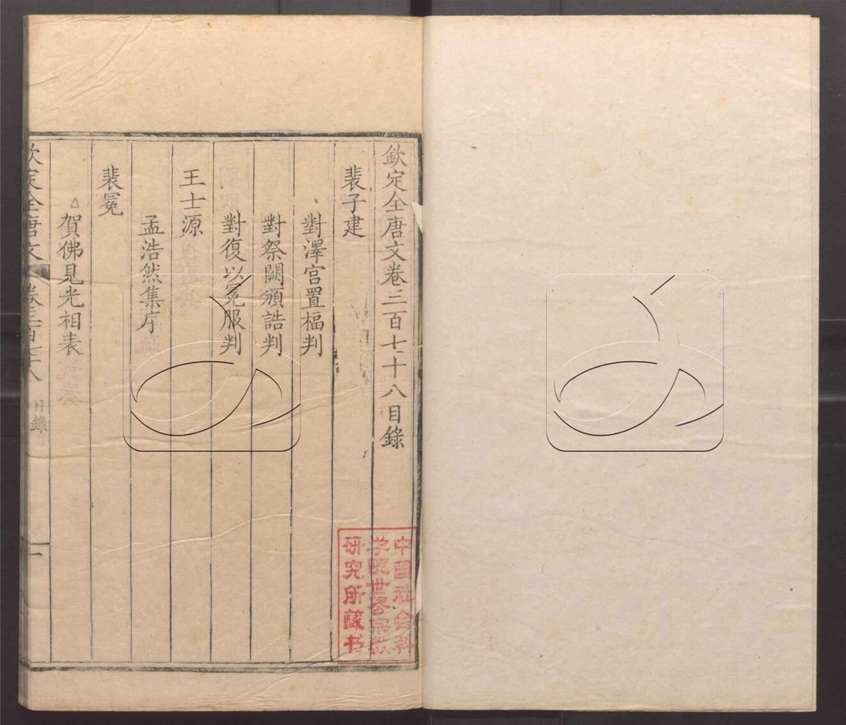 欽定全唐文卷三百七十八目錄
裴子建
對澤宮置楅判
對祭闕頒誥判
對復以冕服判
王士源
孟浩然集序
裴冕
賀佛見光相表
欽定全唐文
卷三百七十八
目錄
一
中國社会科
学院世界宗教
研究所藏书